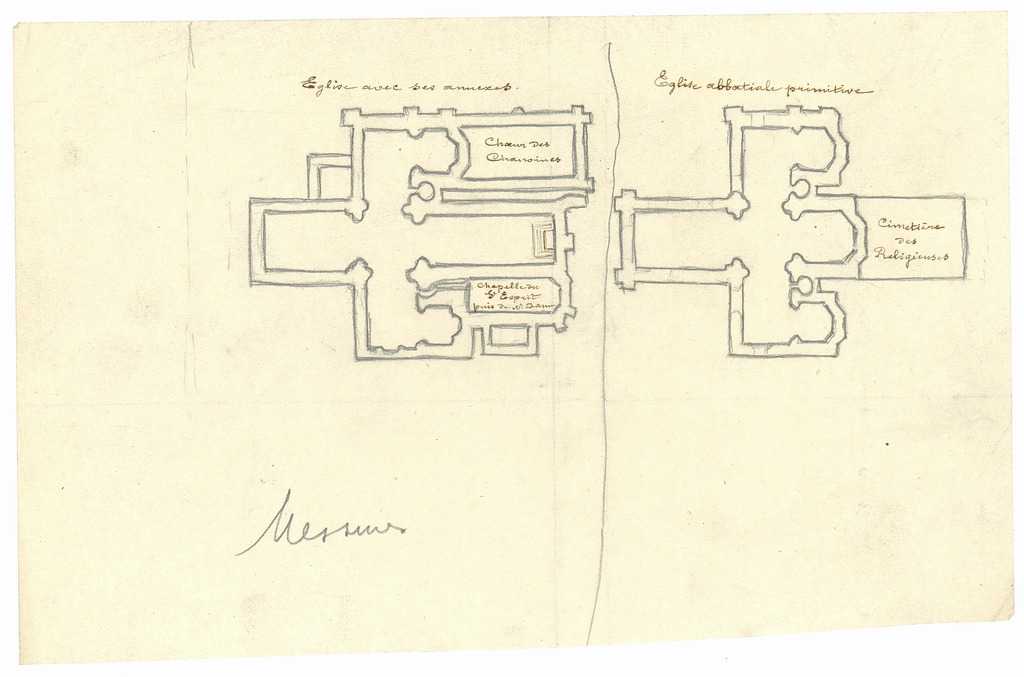 Eglise avec ses annexes.
Eglise abbatiale primitive
Chœur des
Chanoines
Chapelle du
St Esprit
puis de N. Dame
Cimetière
des
Religieuses
Messines